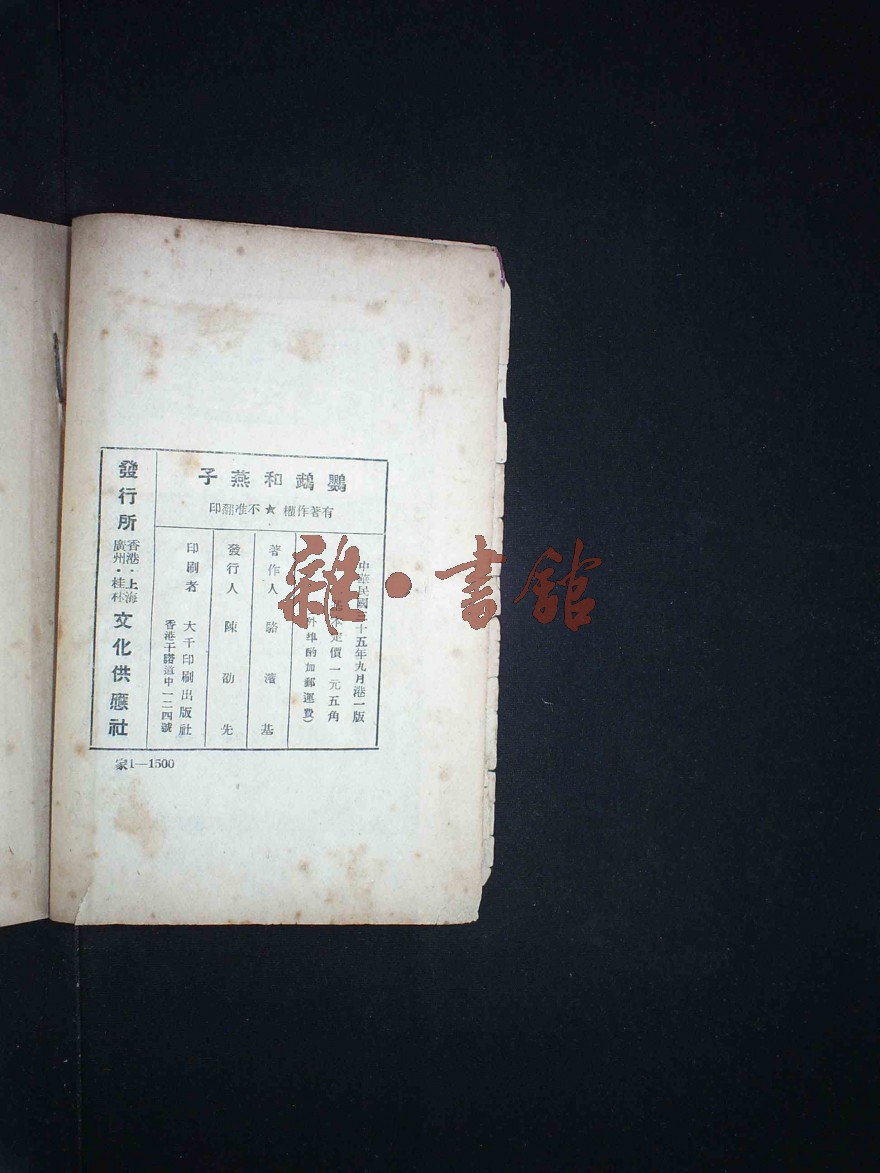 鸚鵡和燕子
有著作權★不准翻印
中華民國三十五年九月港一版
定價一元五角
外埠酌加郵運費）
著作人 駱濱基
發行人 陳劭先
印刷者 大千印刷出版社
香港干諾道中一二四號
發行所 香港·上海
廣州·桂林
文化供應社
家1—1500
雜·書館